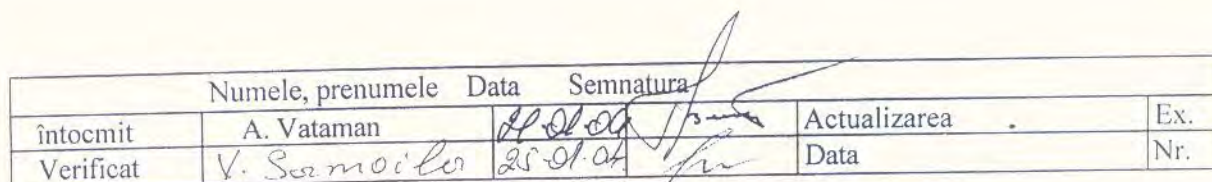 Numele, prenumele Data Semnatura
întocmit A. Vataman Actualizarea . Ex.
Verificat V. Samoila 25.01.04 Data Nr.